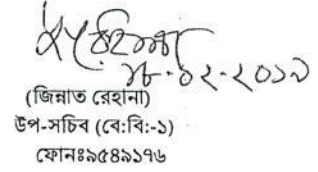 ১৮-০২-২০১৯
(জিন্নাত রেহানা)
উপ-সচিব (বে:বি:-১)
ফোনঃ৯৫৪৯১৭৬